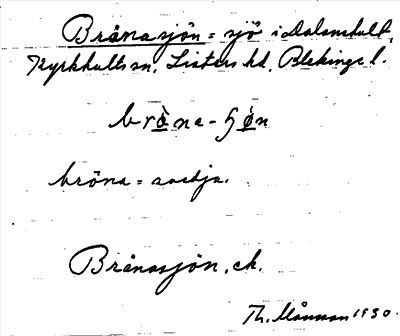 Brånasjön = sjö i Dalanshult,
Kyrkhults sn, Listers hd, Blekinge l.
bròna-ʃǿn
bröna = svedja.
Brånasjön, ek.
Th. Månsson 1930.